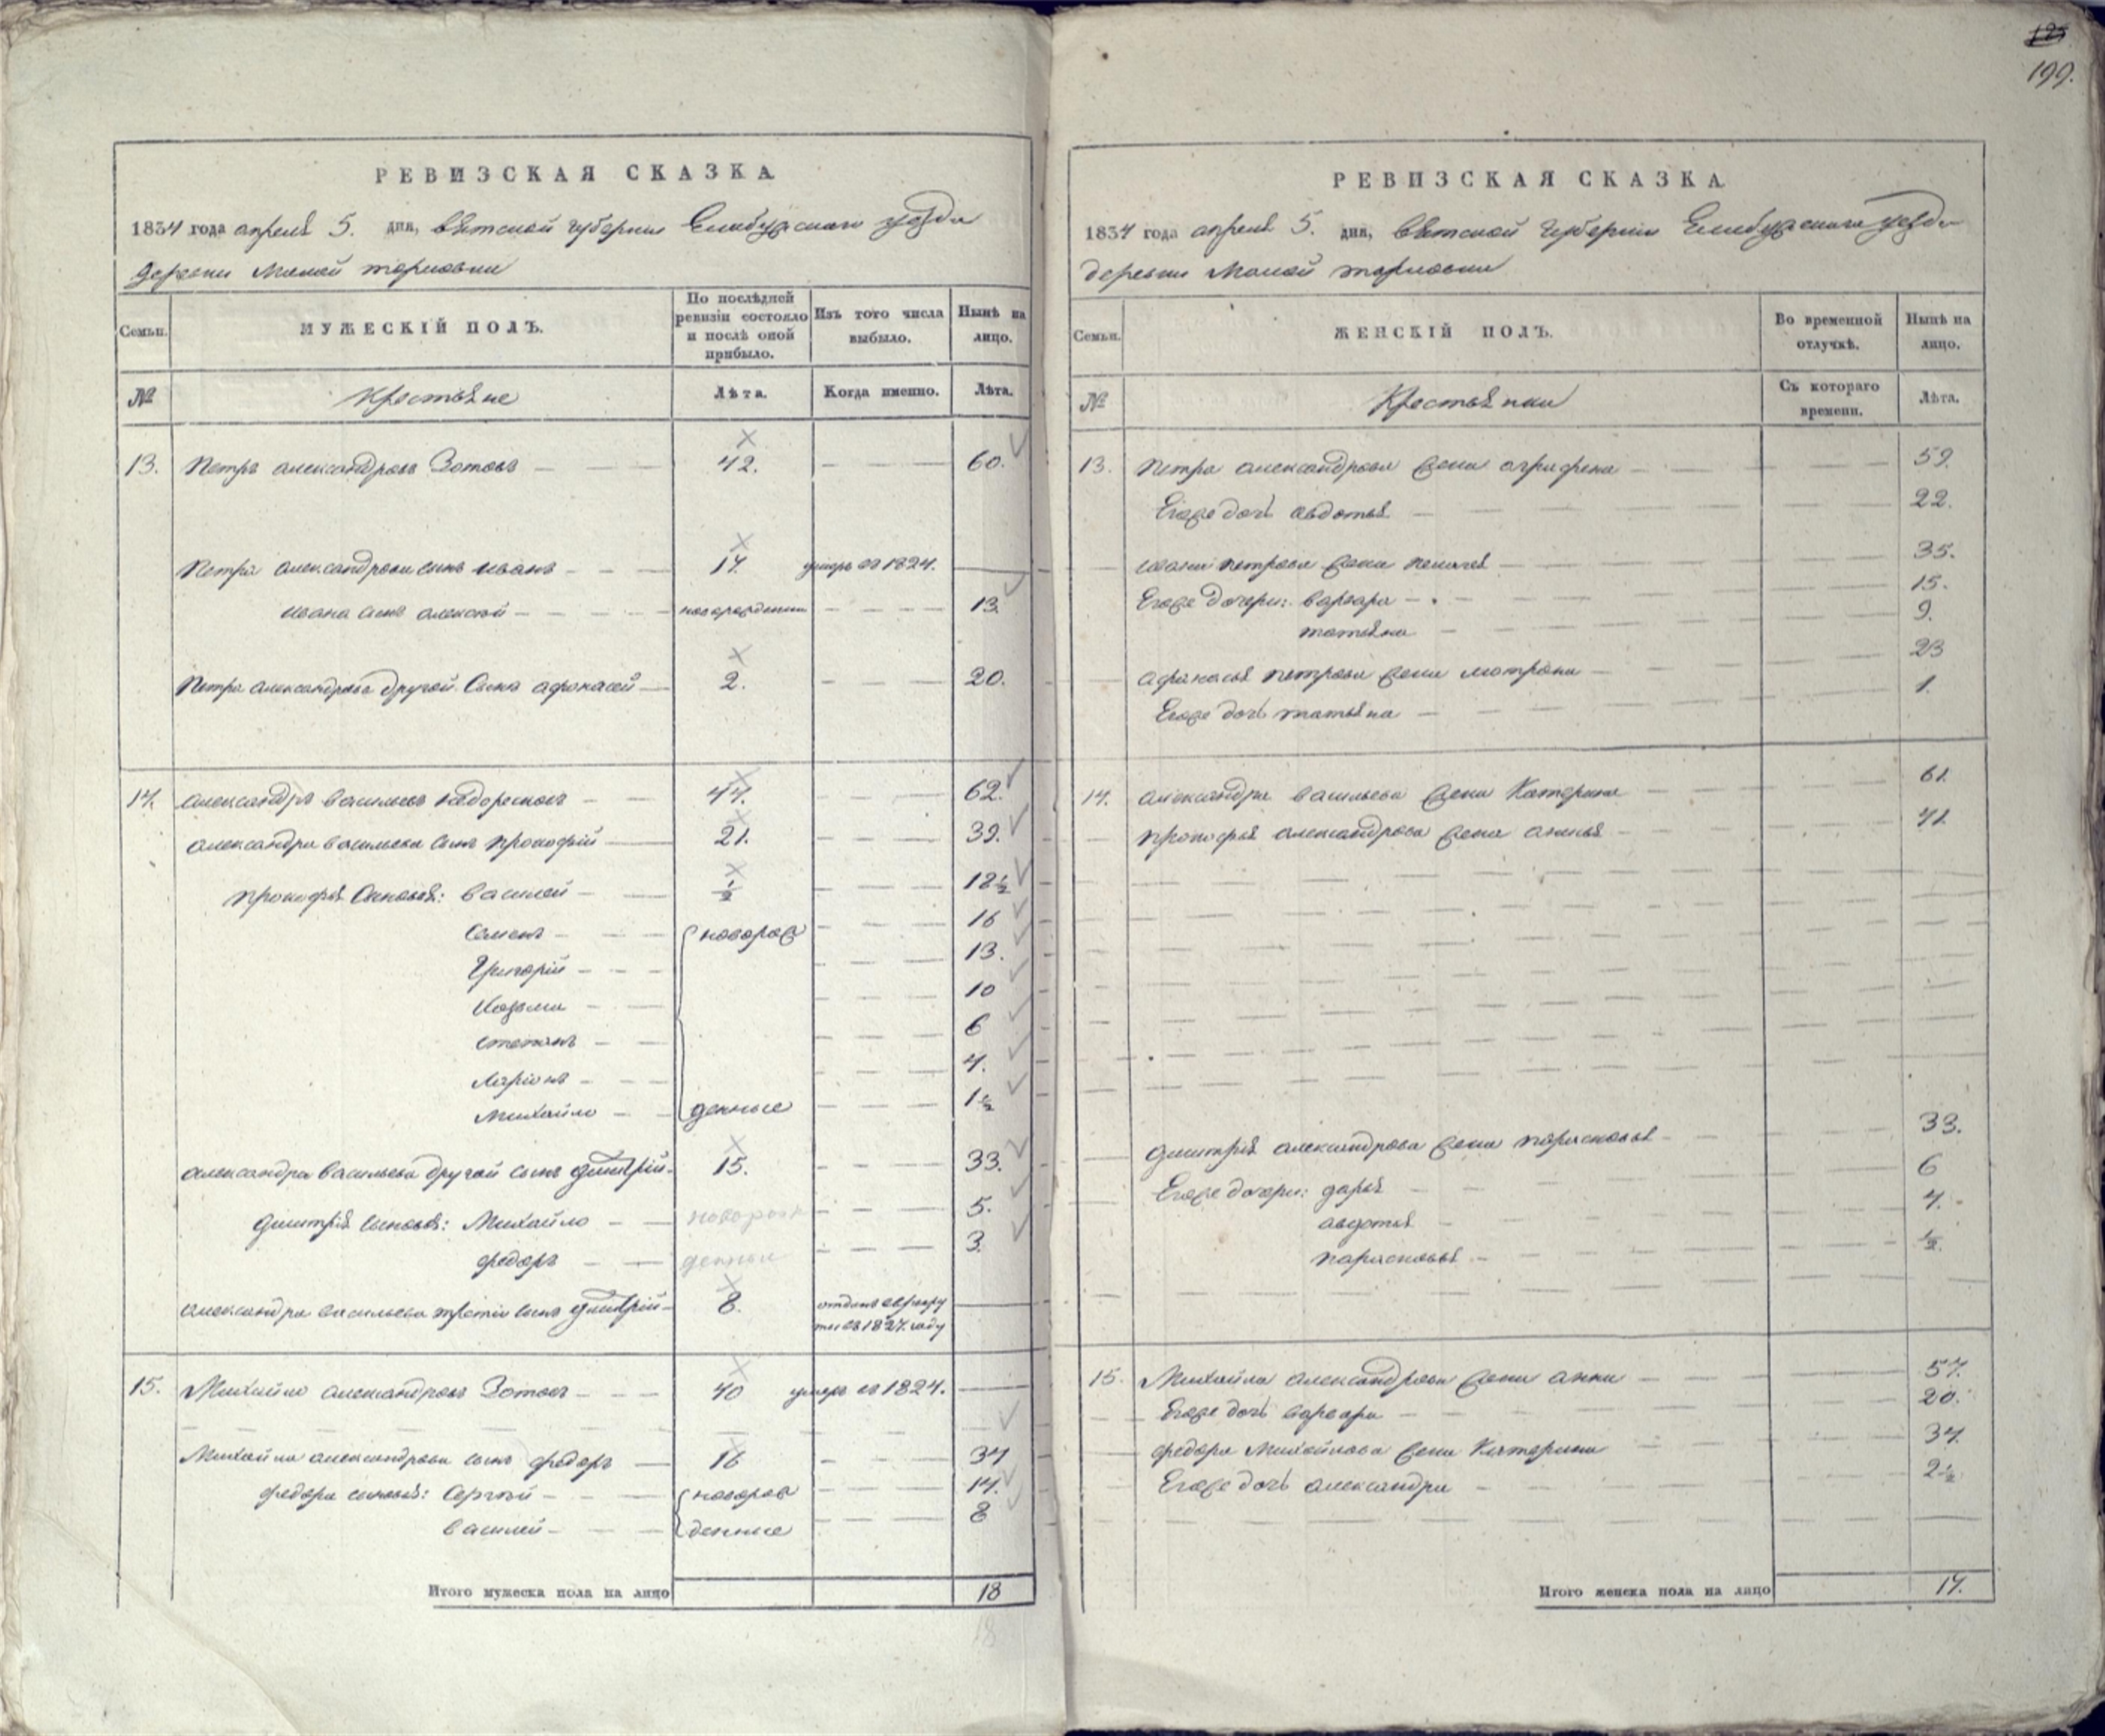 125
199.
РЕВИЗСКАЯ СКАЗКА
1834 года апреля 5. дня, вятской губернии Елабужскаго уезда
деревни Малой
Семьи. МУЖЕСКІЙ ПОЛЪ. По послѣдней ревизіи состояло и послѣ оной прибыло. Изъ того числа выбыло. Нынѣ на лицо.
№ Крестьяне Лѣта. Когда именно. Лѣта.
13. Петръ александровъ Зотовъ 42. 60.
Петра александрова сынъ иванъ 14. умеръ въ 1824.
ивана сынъ алексей новорожденный 13.
Петра александрова другой сынъ афонасей 2. 20.
14. александръ васильевъ 44. 62.
александра васильева сынъ прокофій 21. 39.
прокофья сыновья: василей ½ 18½
Семенъ новорож 16
Григорій 13.
Козьма 10
степанъ 6
Ларіонъ 4.
Михайло денные 1½
александра васильева другой сынъ дмитрій 15. 33.
дмитрія сыновья: Михайло новорож 5.
федоръ денные 3.
александра васильева третій сынъ дмитрій 8. отданъ въ рекру
ты въ 1827. году
15. Михайло александровъ Зотовъ 40 умеръ въ 1824.
Михайла александрова сынъ федоръ 16 34
федора сыновья: Сергей новорож 14.
василей денные 8
Итого мужеска пола на лицо 18
18
РЕВИЗСКАЯ СКАЗКА
1834 года апреля 5. дня, вятской губерніи Елабужскаго уезда
деревни Малой
Семьи. ЖЕНСКІЙ ПОЛЪ. Во временной отлучкѣ. Нынѣ на лицо.
№ Крестьянки Съ котораго времени. Лѣта.
13. Петра александрова жена аграфена 59.
Егоже дочь авдотья 22.
ивана петрова жена пелагея 35.
Егоже дочери: варвара 15.
татьяна 9.
афанасья петрова жена матрона 23
Егоже дочь татьяна 1.
14. александра васильева жена Катерина 61.
прокофья александрова жена 41.
дмитрія александрова жена парасковья 33.
Егоже дочери: дарья 6
авдотья 4.
парасковья ½.
15. Михайла александрова жена анна 57.
Егоже дочь варвара 20.
федора Михайлова жена Катерина 34.
Егоже дочь александра 2½
Итого женска пола на лицо 17.